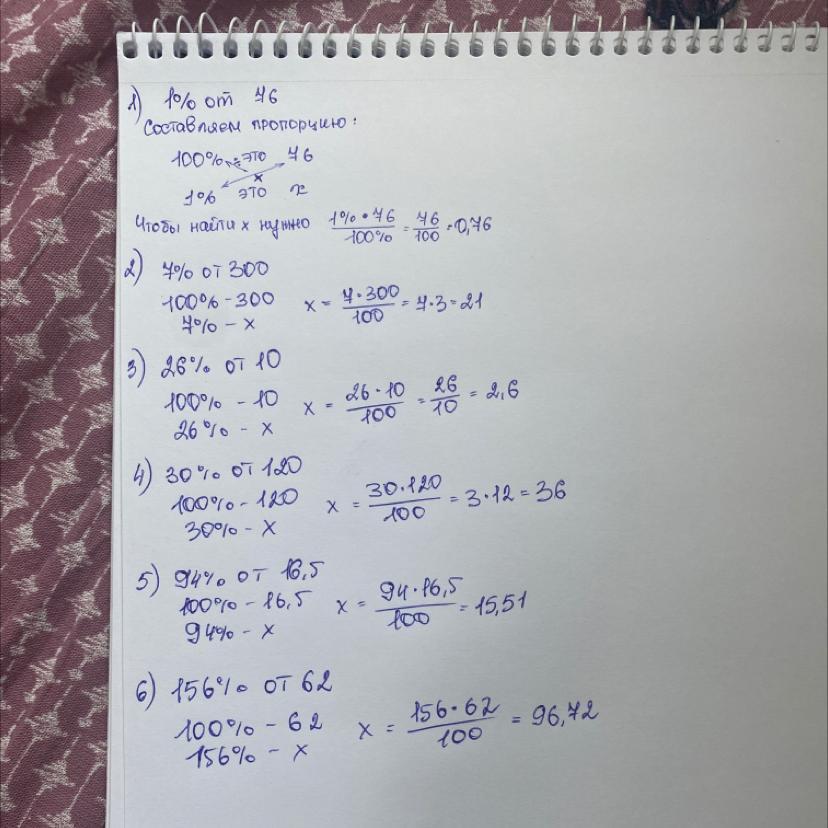 1) 1% от 76
Составляем пропорцию:
100% это 76
1% это x
Чтобы найти x нужно 1% • 76 / 100% = 76 / 100 = 0,76
2) 7% от 300
100% - 300 x = 7 • 300 / 100 = 7 • 3 = 21
7% - x
3) 26% от 10
100% - 10 x = 26 • 10 / 100 = 26 / 10 = 2,6
26% - x
4) 30% от 120
100% - 120 x = 30 • 120 / 100 = 3 • 12 = 36
30% - x
5) 94% от 16,5
100% - 16,5 x = 94 • 16,5 / 100 = 15,51
94% - x
6) 156% от 62
100% - 62 x = 156 • 62 / 100 = 96,72
156% - x